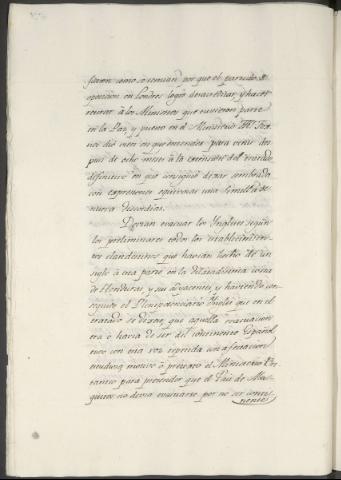 fueron como se temian por que el partido de
oposicion en Londres logró desacreditar, y hacer
retirar à los Ministros que tuvieron parte
en la Paz, y puesto en el Ministerio Mr. Fox
nos dió mas en que entender para venir des
pues de ocho meses à la extension del tratado
definitivo en que consiguió dexar sembrada
con expresiones equivocas una semilla de
nueva discordia.
Devian evacuar los Yngleses segun
los preliminares todos los establecimien
tos clandestinos que havian hecho de un
siglo à esta parte en la dilatadisima costa
de Honduras, y sus adyacentes, y haviendo con
seguido el Plenipotenciario Ynglés que en el
tratado se dixese, que aquella evacuacion
era o havia de ser del continente Español
tomó con esta voz repetida con afectacion
estudiosa motivo ò pretexto el Ministerio Bri
tanico para pretender que el Pais de Mos
quitos no devia evacuarse por no ser conti
nente